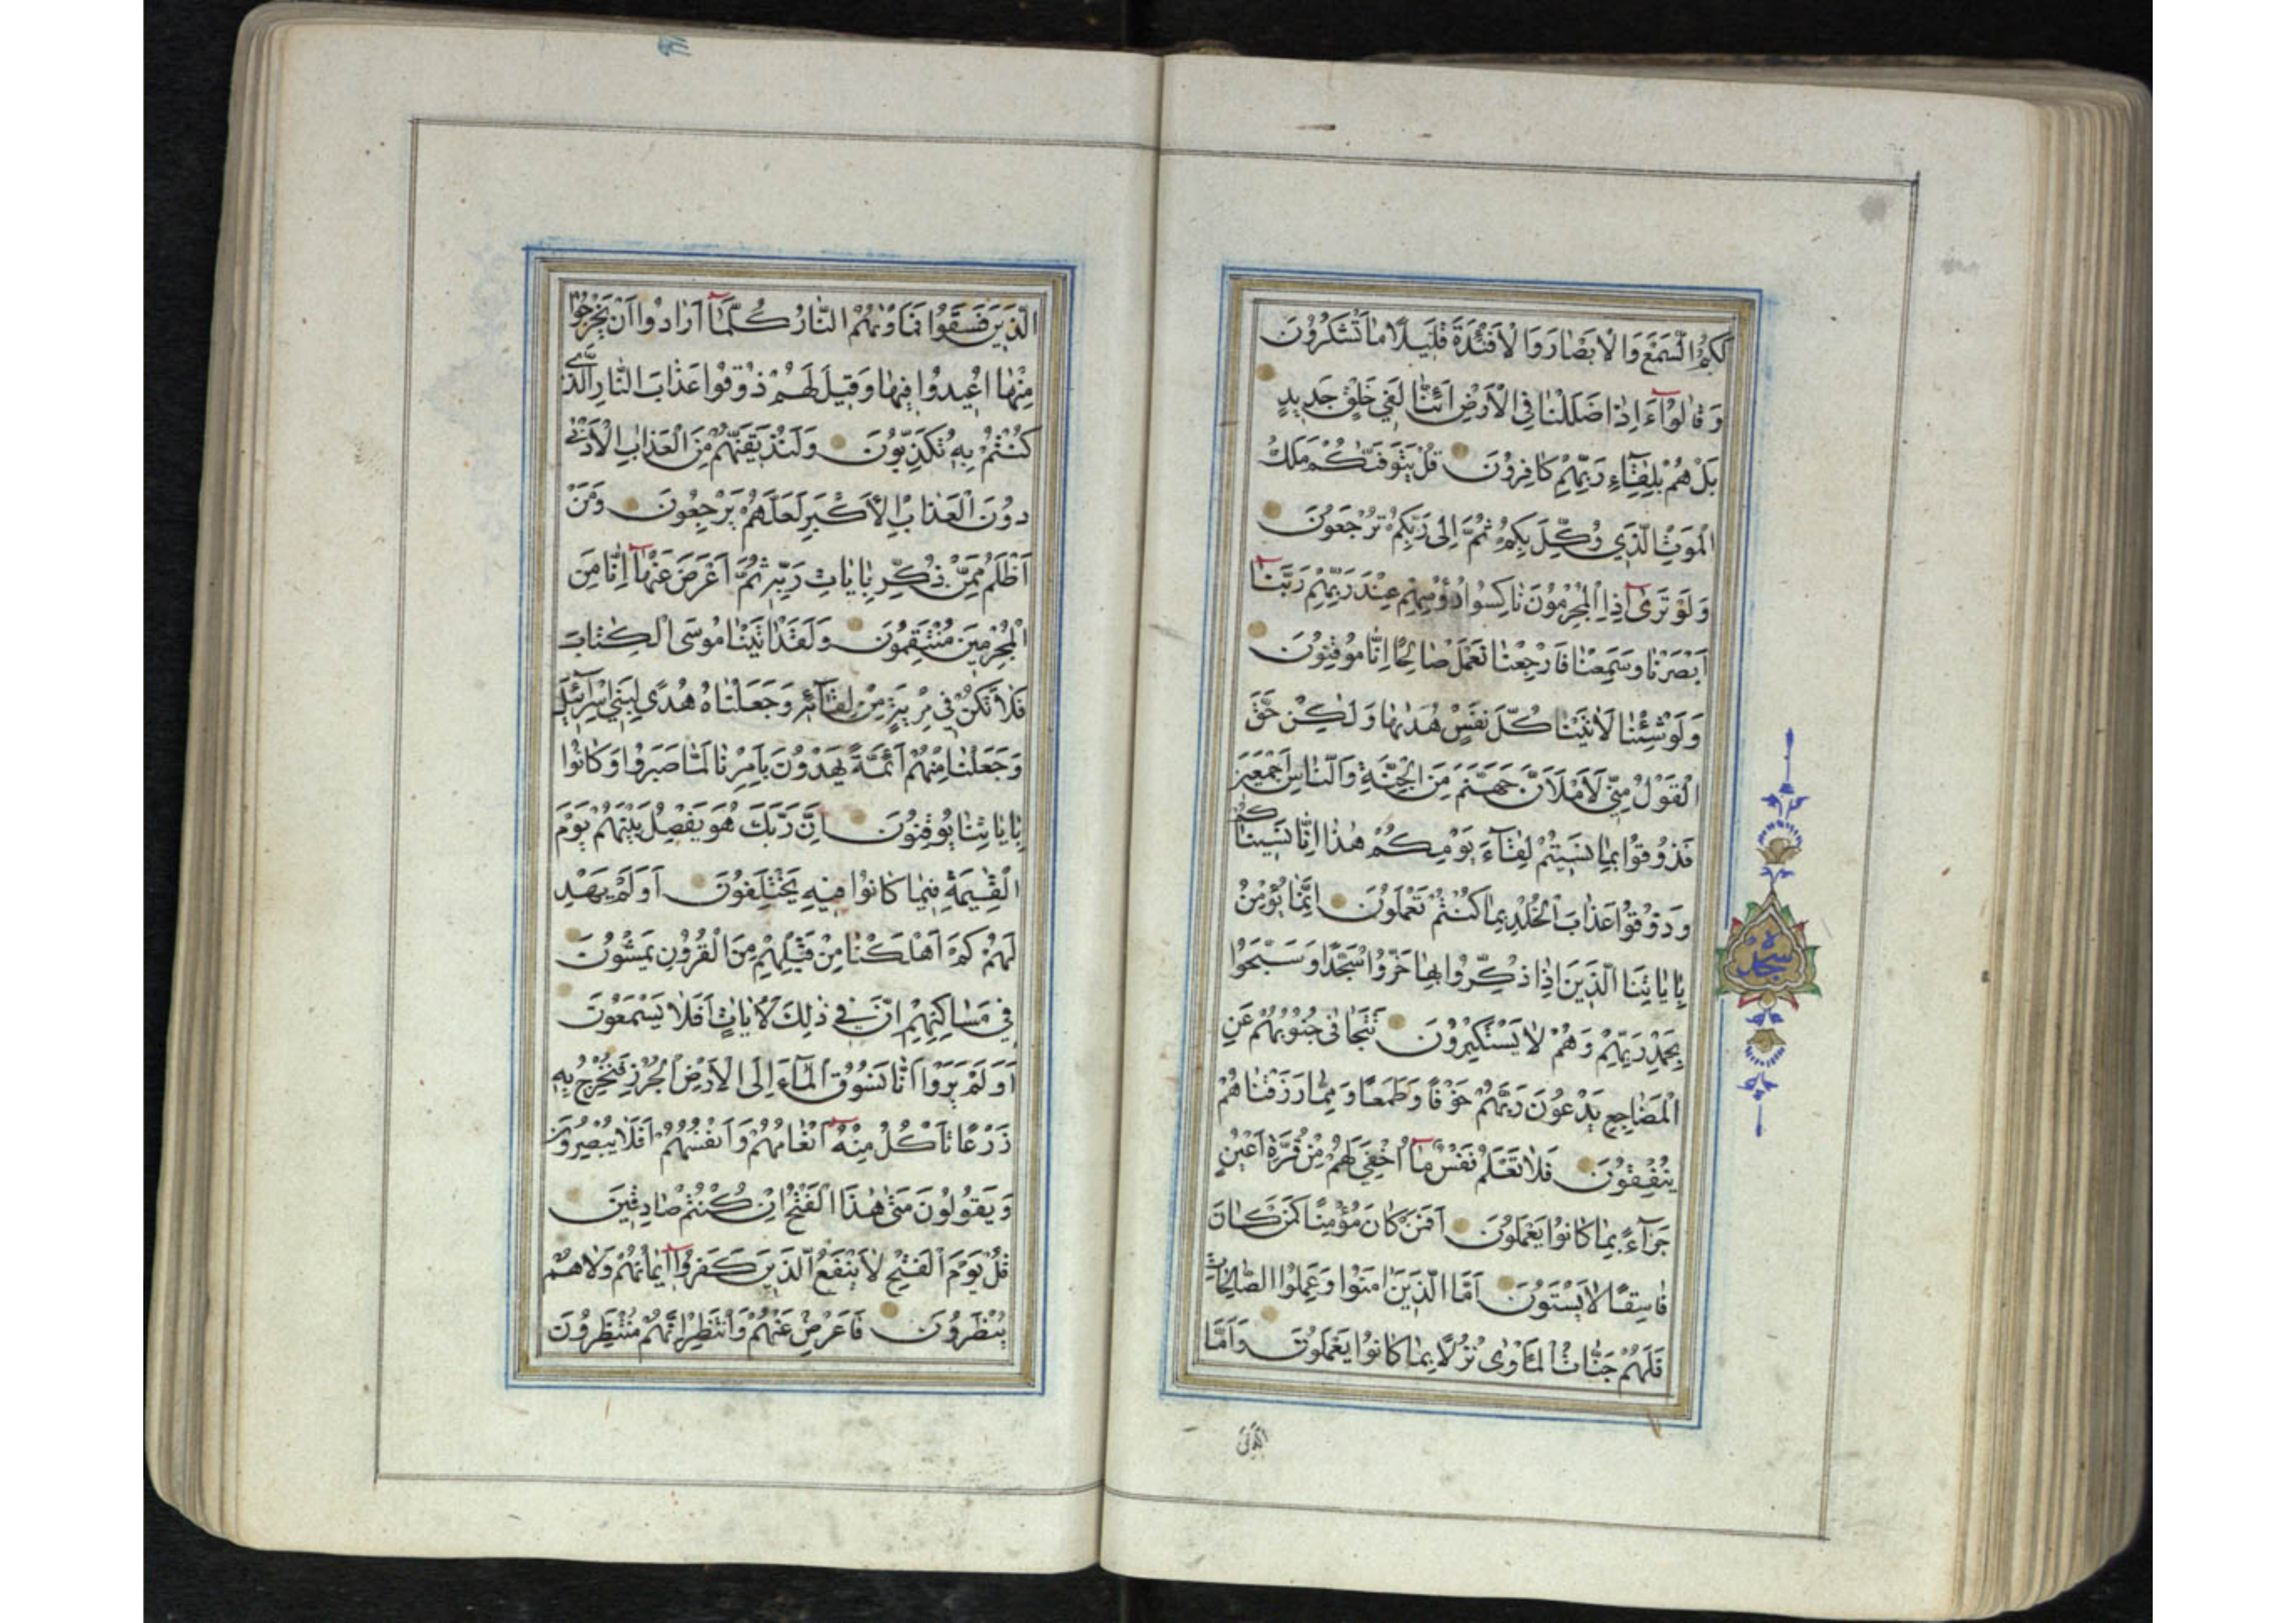 لَكُمُ السَّمْعَ وَالْاَبْصَارَ وَالْاَفْئِدَةَ قَلِيلًا مَا تَشْكُرُونَ
وَقَالُوآ ءَاِذَا ضَلَلْنَا فِي الْاَرْضِ اَئِنَّا لَفِي خَلْقٍ جَدِيدٍ
بَلْ هُمْ بِلِقَآءِ رَبِّهِمْ كَافِرُونَ قُلْ يَتَوَفّٰىكُمْ مَلَكُ
الْمَوْتِ الَّذِي وُكِّلَ بِكُمْ ثُمَّ اِلٰى رَبِّكُمْ تُرْجَعُونَ
وَلَوْ تَرٰىٓ اِذِ الْمُجْرِمُونَ نَاكِسُوا رُؤُسِهِمْ عِنْدَ رَبِّهِمْ رَبَّنَآ
اَبْصَرْنَا وَسَمِعْنَا فَارْجِعْنَا نَعْمَلْ صَالِحًا اِنَّا مُوقِنُونَ
وَلَوْ شِئْنَا لَاٰتَيْنَا كُلَّ نَفْسٍ هُدٰىهَا وَلٰكِنْ حَقَّ
الْقَوْلُ مِنِّي لَاَمْلَاَنَّ جَهَنَّمَ مِنَ الْجِنَّةِ وَالنَّاسِ اَجْمَعِينَ
فَذُوقُوا بِمَا نَسِيتُمْ لِقَآءَ يَوْمِكُمْ هٰذَا اِنَّا نَسِينَاكُمْ
وَذُوقُوا عَذَابَ الْخُلْدِ بِمَا كُنْتُمْ تَعْمَلُونَ اِنَّمَا يُؤْمِنُ
بِاٰيَاتِنَا الَّذِينَ اِذَا ذُكِّرُوا بِهَا خَرُّوا سُجَّدًا وَسَبَّحُوا
بِحَمْدِ رَبِّهِمْ وَهُمْ لَا يَسْتَكْبِرُونَ تَتَجَافٰى جُنُوبُهُمْ عَنِ
الْمَضَاجِعِ يَدْعُونَ رَبَّهُمْ خَوْفًا وَطَمَعًا وَمِمَّا رَزَقْنَاهُمْ
يُنْفِقُونَ فَلَا تَعْلَمُ نَفْسٌ مَآ اُخْفِيَ لَهُمْ مِنْ قُرَّةِ اَعْيُنٍ
جَزَآءً بِمَا كَانُوا يَعْمَلُونَ اَفَمَنْ كَانَ مُؤْمِنًا كَمَنْ كَانَ
فَاسِقًا لَا يَسْتَوُونَ اَمَّا الَّذِينَ اٰمَنُوا وَعَمِلُوا الصَّالِحَاتِ
فَلَهُمْ جَنَّاتُ الْمَاْوٰى نُزُلًا بِمَا كَانُوا يَعْمَلُونَ وَاَمَّا
سجده
الَّذِينَ
الَّذِينَ فَسَقُوا فَمَاْوٰىهُمُ النَّارُ كُلَّمَآ اَرَادُوا اَنْ يَخْرُجُوا
مِنْهَا اُعِيدُوا فِيهَا وَقِيلَ لَهُمْ ذُوقُوا عَذَابَ النَّارِ الَّذِي
كُنْتُمْ بِهِ تُكَذِّبُونَ وَلَنُذِيقَنَّهُمْ مِنَ الْعَذَابِ الْاَدْنٰى
دُونَ الْعَذَابِ الْاَكْبَرِ لَعَلَّهُمْ يَرْجِعُونَ وَمَنْ
اَظْلَمُ مِمَّنْ ذُكِّرَ بِاٰيَاتِ رَبِّهِ ثُمَّ اَعْرَضَ عَنْهَآ اِنَّا مِنَ
الْمُجْرِمِينَ مُنْتَقِمُونَ وَلَقَدْ اٰتَيْنَا مُوسَى الْكِتَابَ
فَلَا تَكُنْ فِي مِرْيَةٍ مِنْ لِقَآئِهِ وَجَعَلْنَاهُ هُدًى لِبَنِي اِسْرَآئِيلَ
وَجَعَلْنَا مِنْهُمْ اَئِمَّةً يَهْدُونَ بِاَمْرِنَا لَمَّا صَبَرُوا وَكَانُوا
بِاٰيَاتِنَا يُوقِنُونَ اِنَّ رَبَّكَ هُوَ يَفْصِلُ بَيْنَهُمْ يَوْمَ
الْقِيٰمَةِ فِيمَا كَانُوا فِيهِ يَخْتَلِفُونَ اَوَلَمْ يَهْدِ
لَهُمْ كَمْ اَهْلَكْنَا مِنْ قَبْلِهِمْ مِنَ الْقُرُونِ يَمْشُونَ
فِي مَسَاكِنِهِمْ اِنَّ فِي ذٰلِكَ لَاٰيَاتٍ اَفَلَا يَسْمَعُونَ
اَوَلَمْ يَرَوْا اَنَّا نَسُوقُ الْمَآءَ اِلَى الْاَرْضِ الْجُرُزِ فَنُخْرِجُ بِهِ
زَرْعًا تَاْكُلُ مِنْهُ اَنْعَامُهُمْ وَاَنْفُسُهُمْ اَفَلَا يُبْصِرُونَ
وَيَقُولُونَ مَتٰى هٰذَا الْفَتْحُ اِنْ كُنْتُمْ صَادِقِينَ
قُلْ يَوْمَ الْفَتْحِ لَا يَنْفَعُ الَّذِينَ كَفَرُوآ اِيمَانُهُمْ وَلَا هُمْ
يُنْظَرُونَ فَاَعْرِضْ عَنْهُمْ وَانْتَظِرْ اِنَّهُمْ مُنْتَظِرُونَ